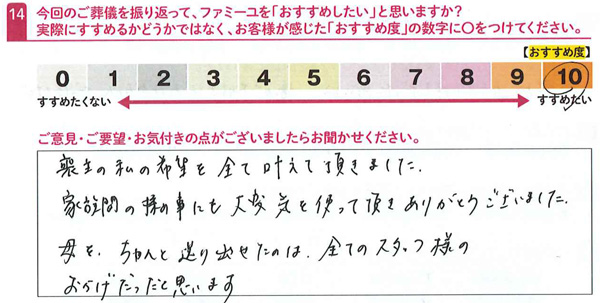 14 今回のご葬儀を振り返って、ファミーユを「おすすめしたい」と思いますか？
実際にすすめるかどうかではなく、お客様が感じた「おすすめ度」の数字に〇をつけてください。
【おすすめ度】
0 1 2 3 4 5 6 7 8 9 10
すすめたくない すすめたい
ご意見・ご要望・お気付きの点がございましたらお聞かせください。
喪主の私の希望を全て叶えて頂きました。
家族間の の事にも大変気を使って頂きありがとうございました。
母を、ちゃんと送り出せたのは、全てのスタッフ様の
おかげだったと思います